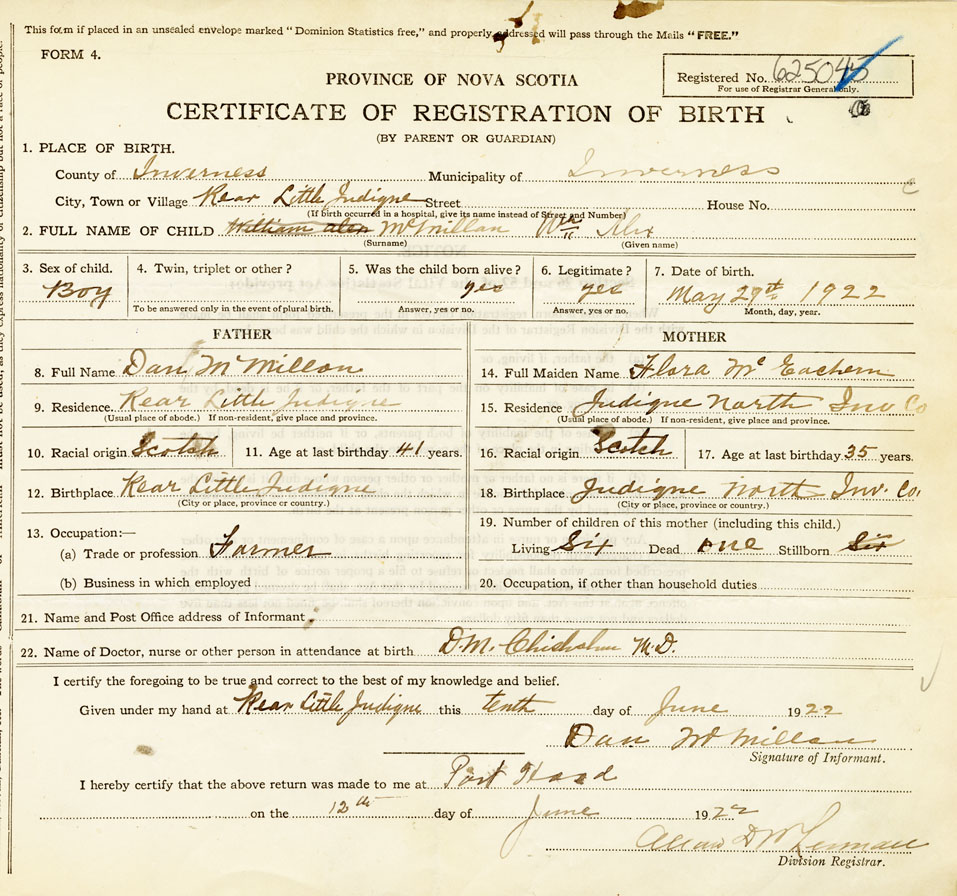 This form if placed in an unsealed envelope marked "Dominion Statistics free," and properly addressed will pass through the Mails "FREE."
FORM 4.
Registered No. 625045
For use of Registrar General only.
PROVINCE OF NOVA SCOTIA
CERTIFICATE OF REGISTRATION OF BIRTH
(BY PARENT OR GUARDIAN)
1. PLACE OF BIRTH.
County of Inverness Municipality of Inverness
City, Town or Village Rear Little Judique Street House No.
(If birth occurred in a hospital, give its name instead of Street and Number)
2. FULL NAME OF CHILD William Alex McMillan Wm Alex
(Surname) (Given name)
3. Sex of child. 4. Twin, triplet or other? 5. Was the child born alive? 6. Legitimate? 7. Date of birth.
Boy yes yes May 29th 1922
To be answered only in the event of plural birth. Answer, yes or no. Answer, yes or no. Month, day, year.
FATHER MOTHER
8. Full Name Dan McMillan 14. Full Maiden Name Flora McEachern
9. Residence. Rear Little Judique 15. Residence Judique North Inv Co
(Usual place of abode.) If non-resident, give place and province. (Usual place of abode.) If non-resident, give place and province.
10. Racial origin Scotch 11. Age at last birthday 41 years. 16. Racial origin Scotch 17. Age at last birthday 35 years.
12. Birthplace Rear Little Judique 18. Birthplace Judique North Inv. Co.
(City or place, province or country.) (City or place, province or country.)
13. Occupation:— 19. Number of children of this mother (including this child.)
(a) Trade or profession Farmer Living Six Dead one Stillborn Six
(b) Business in which employed 20. Occupation, if other than household duties
21. Name and Post Office address of Informant
22. Name of Doctor, nurse or other person in attendance at birth D.M. Chisholm M.D.
I certify the foregoing to be true and correct to the best of my knowledge and belief.
Given under my hand at Rear Little Judique this tenth day of June 1922
Dan McMillan
Signature of Informant.
I hereby certify that the above return was made to me at Port Hood
on the 12th day of June 1922
Division Registrar.